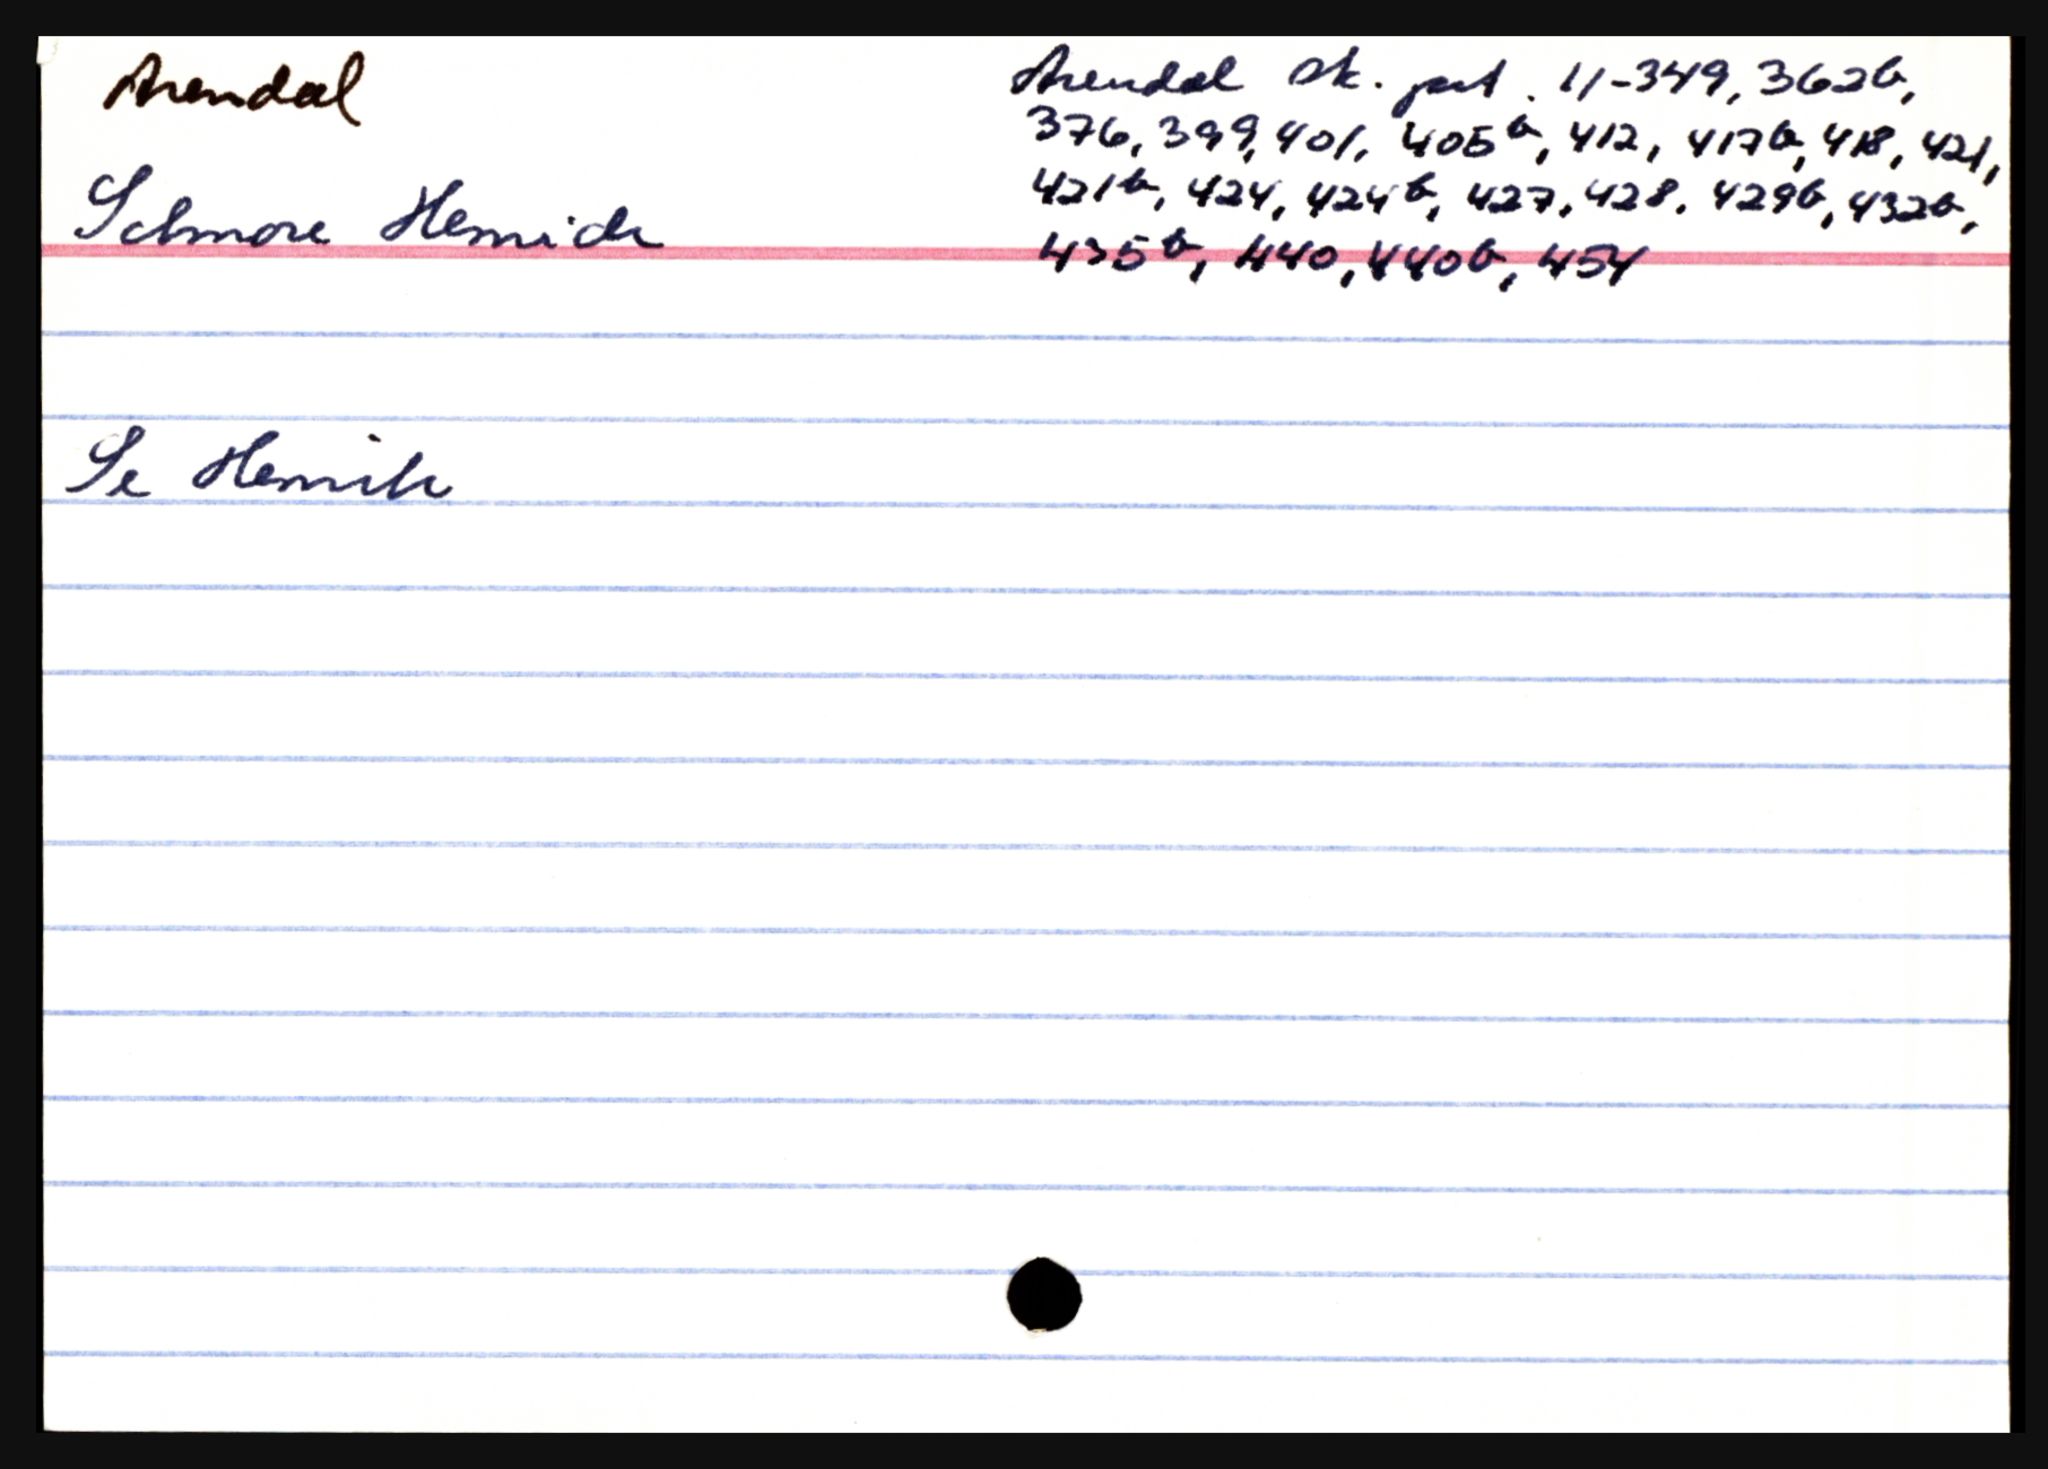 Arendal
Arendal sk. prt. 11-349, 362b,
376, 399, 401, 405b, 412, 417b, 418, 421,
421b, 424, 424b, 427, 428, 429b, 432b,
435b, 440, 440b, 454
Schnore Henrich
Se Henrik